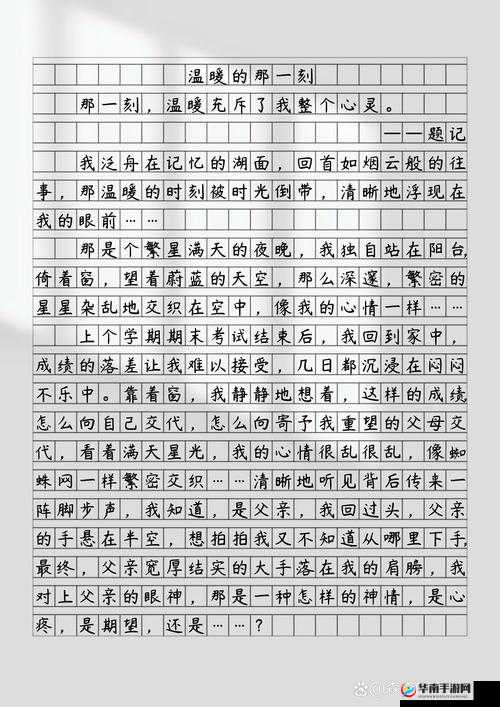 温暖的那一刻
那一刻，温暖充斥了我整个心灵。
——题记
我泛舟在记忆的湖面，回首如烟云般的往
事，那温暖的时刻被时光倒带，清晰地浮现在
我的眼前……
那是个繁星满天的夜晚，我独自站在阳台，
倚着窗，望着蔚蓝的天空，那么深邃，繁密的
星星杂乱地交织在空中，像我的心情一样……
上个学期期末考试结束后，我回到家中，
成绩的落差让我难以接受，几日都沉浸在闷闷
不乐中。靠着窗，我静静地想着，这样的成绩
怎么向自己交代，怎么向寄予我重望的父母交
代，看着满天星光，我的心情很乱很乱，像蜘
蛛网一样繁密交织……清晰地听见背后传来一
阵脚步声，我知道，是父亲，我回过头，父亲
的手悬在半空，想拍拍我又不知道从哪里下手，
最终，父亲宽厚结实的大手落在我的肩膀，我
对上父亲的眼神，那是一种怎样的神情，是心
疼，是期望，还是……？
华南手游网